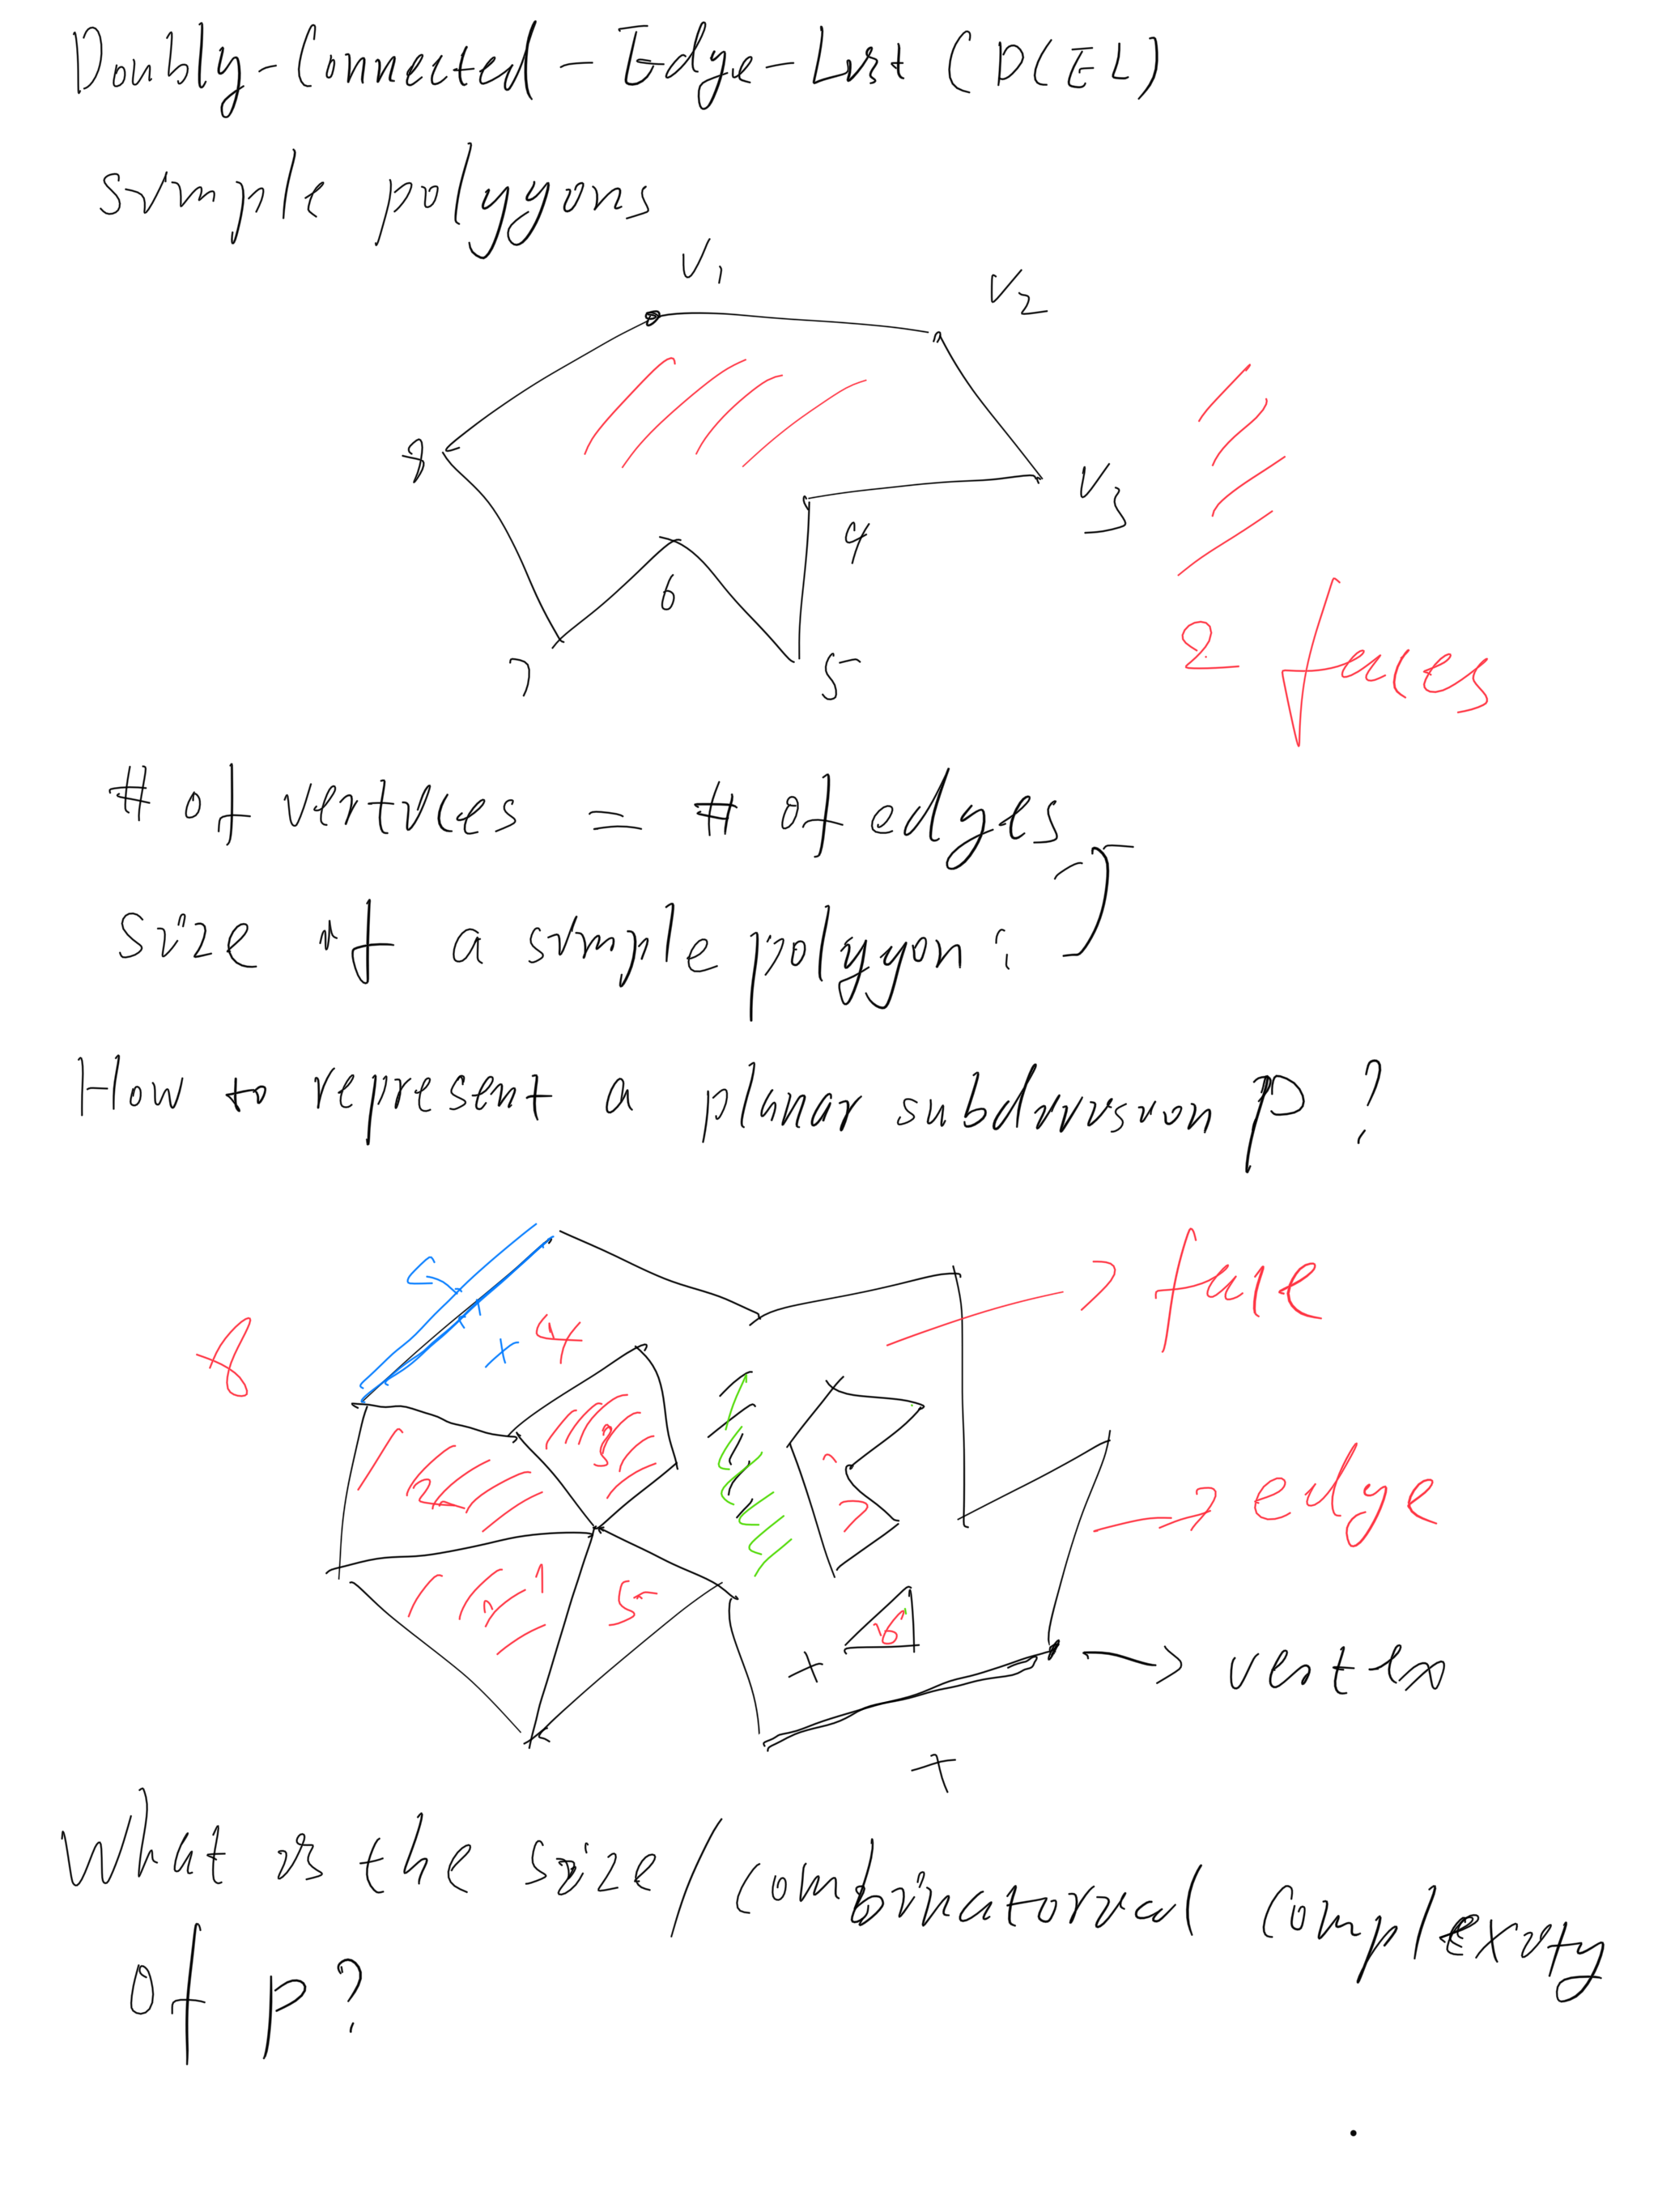 Doubly-Connected-Edge-List (DCEL)
simple polygons
V1
V2
8
V3
4
6
7
5
2 faces
# of vertices = # of edges
size of a simple polygon:
How to represent a planar subdivision P?
face
4
8
3
2
7
edge
1
5
6
vertex
What is the size/combinatorial complexity
of P?